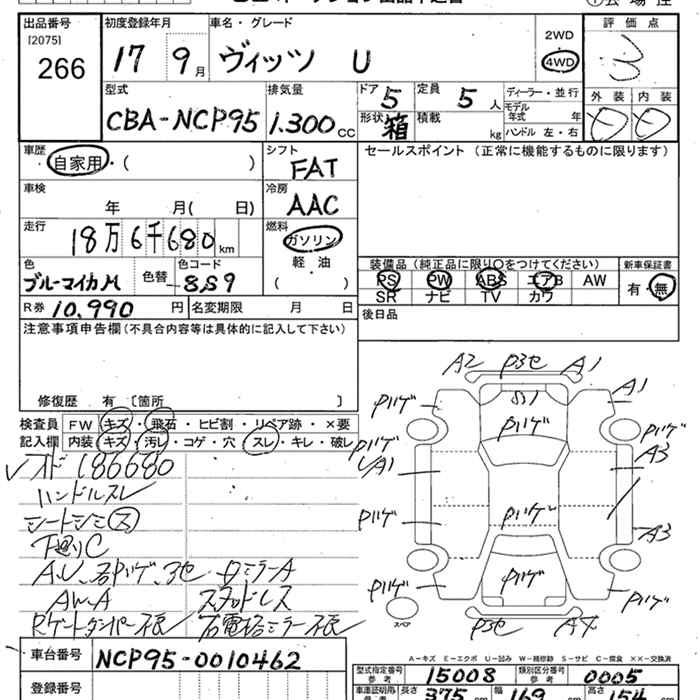 出品番号
[2075]
266
初度登録年月
17 9月
車名・グレード
ヴィッツ U
2WD
4WD
評価点
3
外装 内装
型式
CBA-NCP95
排気量
1.300cc
ドア 5
定員 5人
形状 箱
積載 kg
ディーラー・並行
モデル年式 年
ハンドル 左・右
車歴
自家用・( )
シフト
FAT
セールスポイント (正常に機能するものに限ります)
車検
年 月( 日)
冷房
AAC
走行
18万6千680km
燃料
ガソリン
軽・油
( )
色
ブルーマイカM
色替
色コード
8S9
装備品 (純正品に限り○をつけてください)
PS PW ABS エアB AW
SR ナビ TV カワ
新車保証書
有・無
R券 10,990円
名変期限 月 日
後日品
注意事項申告欄(不具合内容等は具体的に記入して下さい)
修復歴 有 〔箇所 〕
検査員記入欄
FW キズ・飛石・ヒビ割・リペア跡・×要
内装 キズ・汚レ・コゲ・穴・スレ・キレ・破レ
オド 186680
ハンドルスレ
シートシミ ス
下廻りC
A.U、各Pハゲ、3セ ロミラーA
AW-A スタッドレス
Rゲートダンパー不良 右電格ミラー不良
A2 P3セ A1
Pハゲ S1 A1
Pハゲ
Pハゲ Pハゲ
A1 A3
Pハゲ Pハゲ A3
Pハゲ Pハゲ Pハゲ
スペア
P3セ A4
A-キズ E-エクボ U-凹み W-補修跡 S-サビ C-腐食 ××-交換済
車台番号
NCP95-0010462
登録番号
型式指定番号
参考
15008
類別区分番号
参考
0005
長さ 375 幅 169 高さ 154